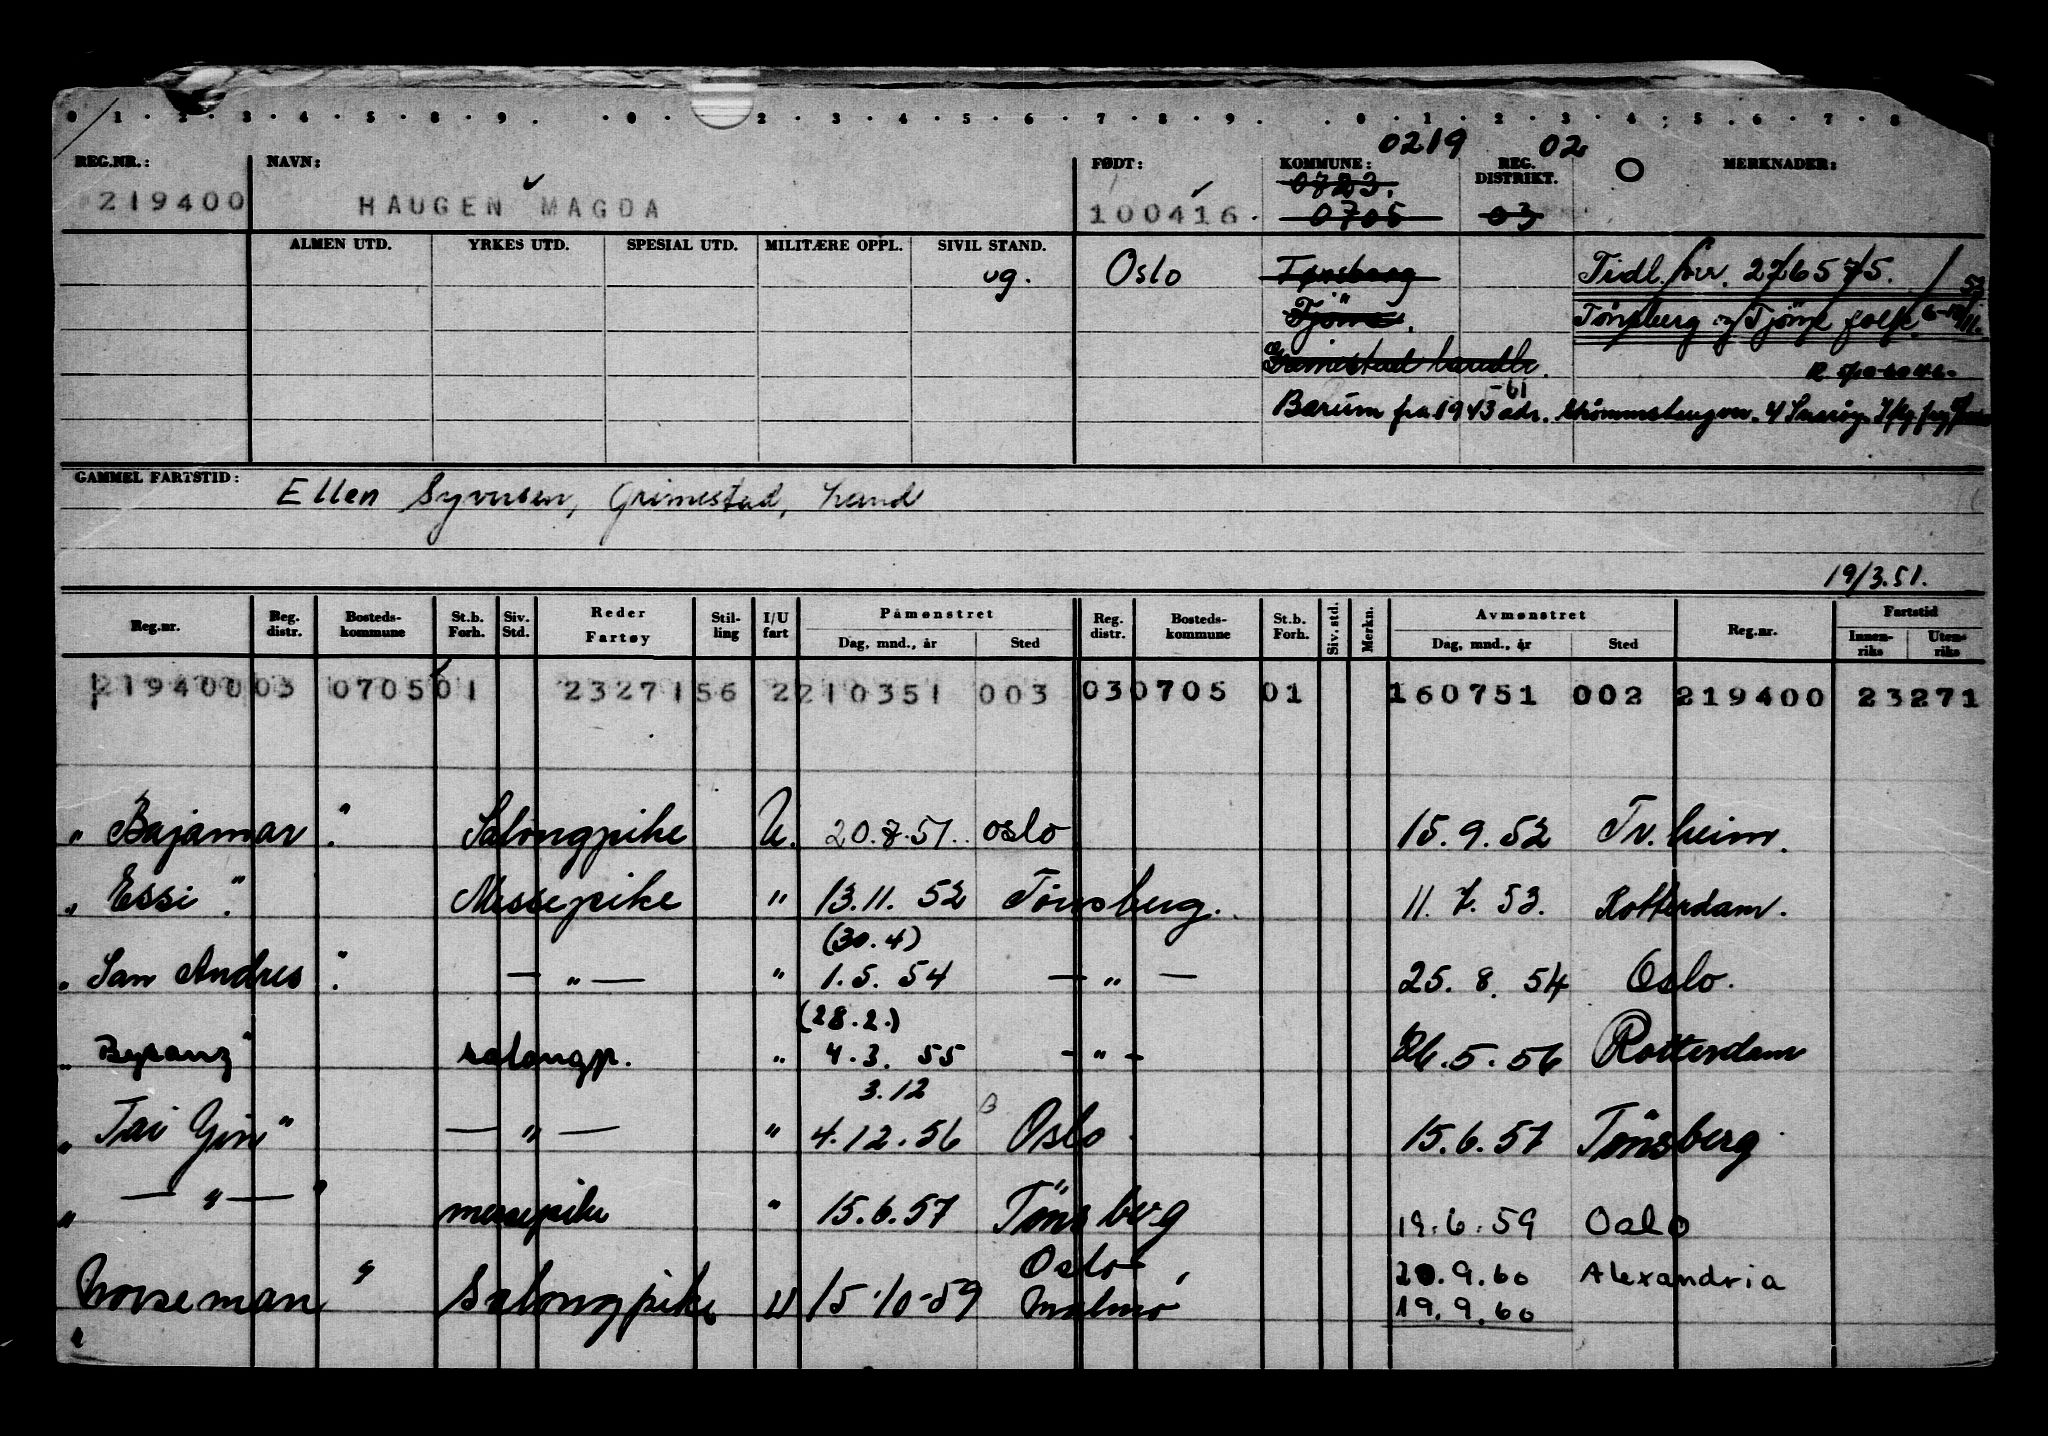 0 · 1 · 2 · 3 · 4 · 5 · 8 · 9 . · 0 · 2 · 3 · 4 · 5 · 6 · 7 · 8 · 9 . . 0 · 1 · 2 · 3 · 4 · 5 · 6 · 7 · 8
0219 02
REG.NR.: NAVN: FØDT: KOMMUNE: REG. DISTRIKT. O MERKNADER:
0723.
219400 HAUGEN MAGDA 100416. 0705 03
ALMEN UTD. YRKES UTD. SPESIAL UTD. MILITÆRE OPPL. SIVIL STAND.
ug. Oslo Tønsberg Tidl. 276575. / 53
Tjöme. Tönsberg og Tjöme folk.
Grimestad
-61
Bærum fra 1943 adr. 4 Snarøy
GAMMEL FARTSTID: Ellen Syvertsen, Grimestad,
19/3.51.
Reg.nr. Reg. distr. Bosteds-kommune St.b. Forh. Siv. Std. Reder Fartøy Stil-ling I/U fart Påmønstret Dag, mnd., år Sted Reg. distr. Bosteds-kommune St.b. Forh. Siv. std. Merkn. Avmønstret Dag, mnd., år Sted Reg.nr. Fartstid Innen-riks Uten-riks
219400 03 0705 01 23271 56 2 210351 003 03 0705 01 160751 002 219400 23271
" Bajamar " Salongpike U. 20.8.51. Oslo 15.9.52 Tr.heim.
" Essi " Messepike " 13.11.52 Tönsberg. 11.7.53. Rotterdam.
(30.4)
" San Andres " — " — " 1.5.54 — " — 25.8.54 Oslo.
(28.2.)
" Byzanz " salongp. " 4.3.55 - " - 26.5.56 Rotterdam
3.12
" Tai Yin " — " — " 4.12.56 Oslo 15.6.57 Tönsberg
" — " — " messepike " 15.6.57 Tönsberg 19.6.59 Oslo
Oslo 20.9.60 Alexandria
" Norseman " Salongpike U 15-10-59 Malmö 19.9.60